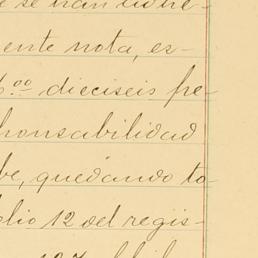 e se han
ente nota, es-
6.00 dieciseis pe-
ponsabilidad
be, quedando to-
olio 12 del regis-